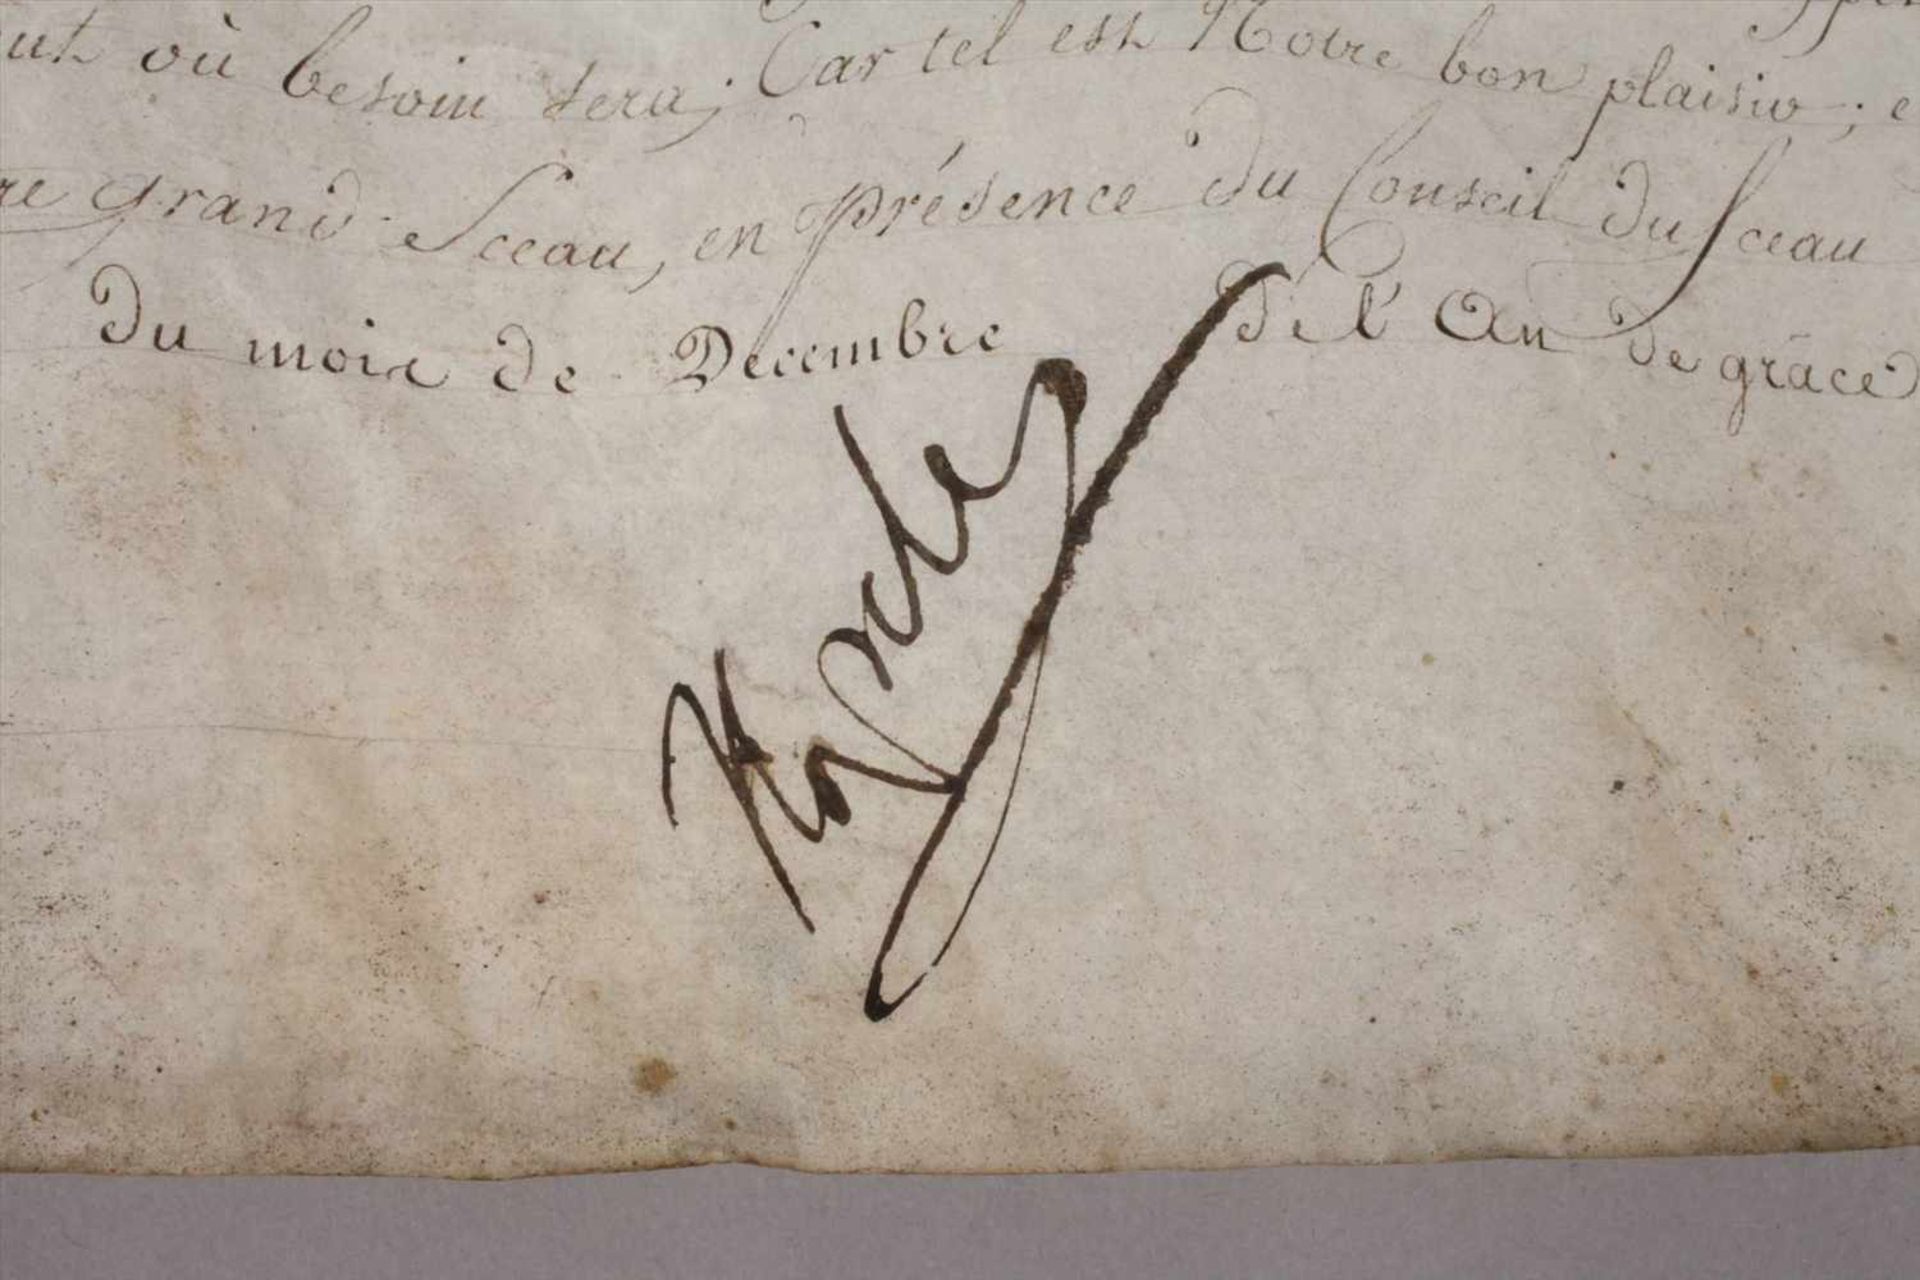 où besoin sera; Car tel est Notre bon plaisir; e
re grand Sceau, en présence du Conseil du Sceau
du mois de Decembre de l'An de grâce